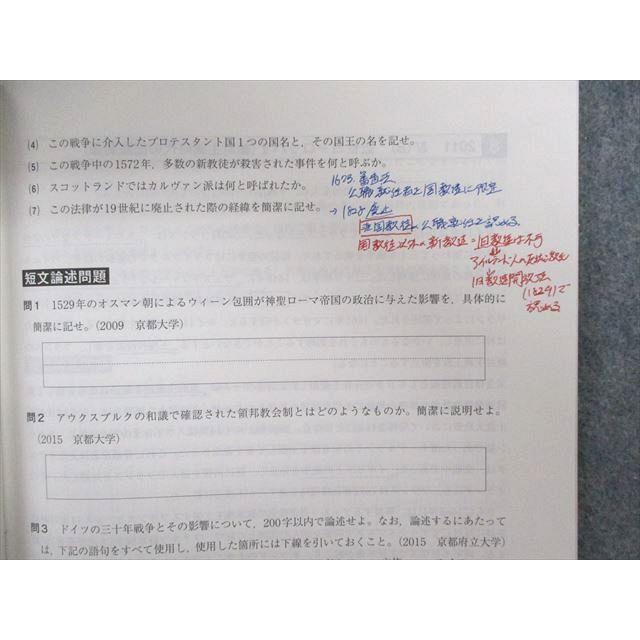 (4) この戦争に介入したプロテスタント国1つの国名と,その国王の名を記せ。
(5) この戦争中の1572年,多数の新教徒が殺害された事件を何と呼ぶか。
(6) スコットランドではカルヴァン派は何と呼ばれたか。
(7) この法律が19世紀に廃止された際の経緯を簡潔に記せ。
1673. 審査法
公職就任者を国教徒に限定
→ 1828 廃止
非国教徒 公職就任を認める
国教徒以外の新教徒 = 旧教徒は不可
アイルランド人の
旧教徒解放法
(1829)で
認める
短文論述問題
問1 1529年のオスマン朝によるウィーン包囲が神聖ローマ帝国の政治に与えた影響を,具体的に
簡潔に記せ。(2009 京都大学)
問2 アウクスブルクの和議で確認された領邦教会制とはどのようなものか。簡潔に説明せよ。
(2015 京都大学)
問3 ドイツの三十年戦争とその影響について,200字以内で論述せよ。なお,論述するにあたって
は,下記の語句をすべて使用し,使用した箇所には下線を引いておくこと。(2015 京都府立大学)